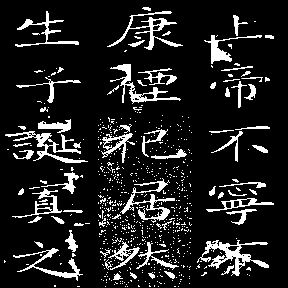 上帝不寧不
康禋祀居然
生子誕寘之